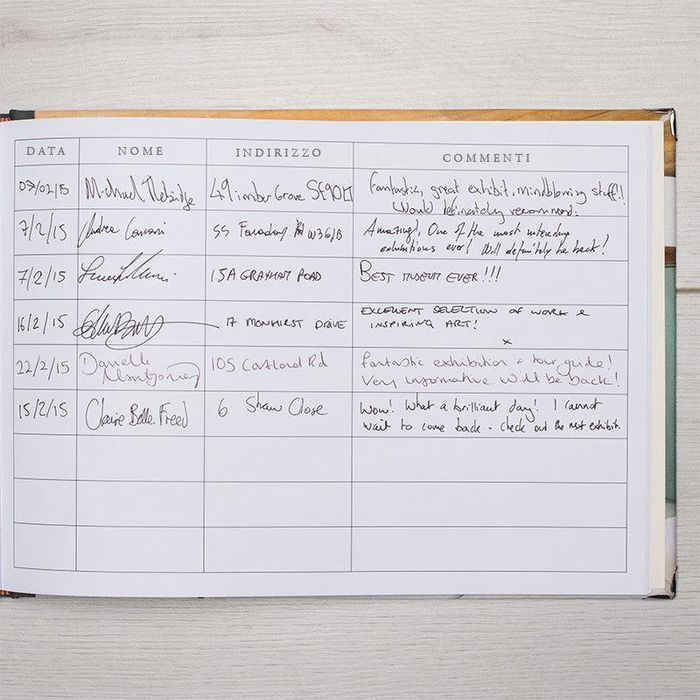 DATA NOME INDIRIZZO COMMENTI
03/02/15 Michael 49 Grove Fantastic, great exhibit, mindblowing stuff!!
Would definately recommend.
7/2/15 Andrea 55 Faraday Rd Amazing!, One of the most
exhibitions ever! Will definitely be back!
7/2/15 15A GRAYHAM ROAD BEST MUSEUM EVER!!!
16/2/15 17 MONHURST DRIVE EXCELLENT SELECTION OF WORK &
INSPIRING ART!
x
22/2/15 Danielle 105 Rd Fantastic exhibition + tour guide!
Montgomery Very informative. Will be back!
15/2/15 Claire Belle Freed 6 Shaw Close Wow! What a brilliant day! I cannot
wait to come back - check out the next exhibit.